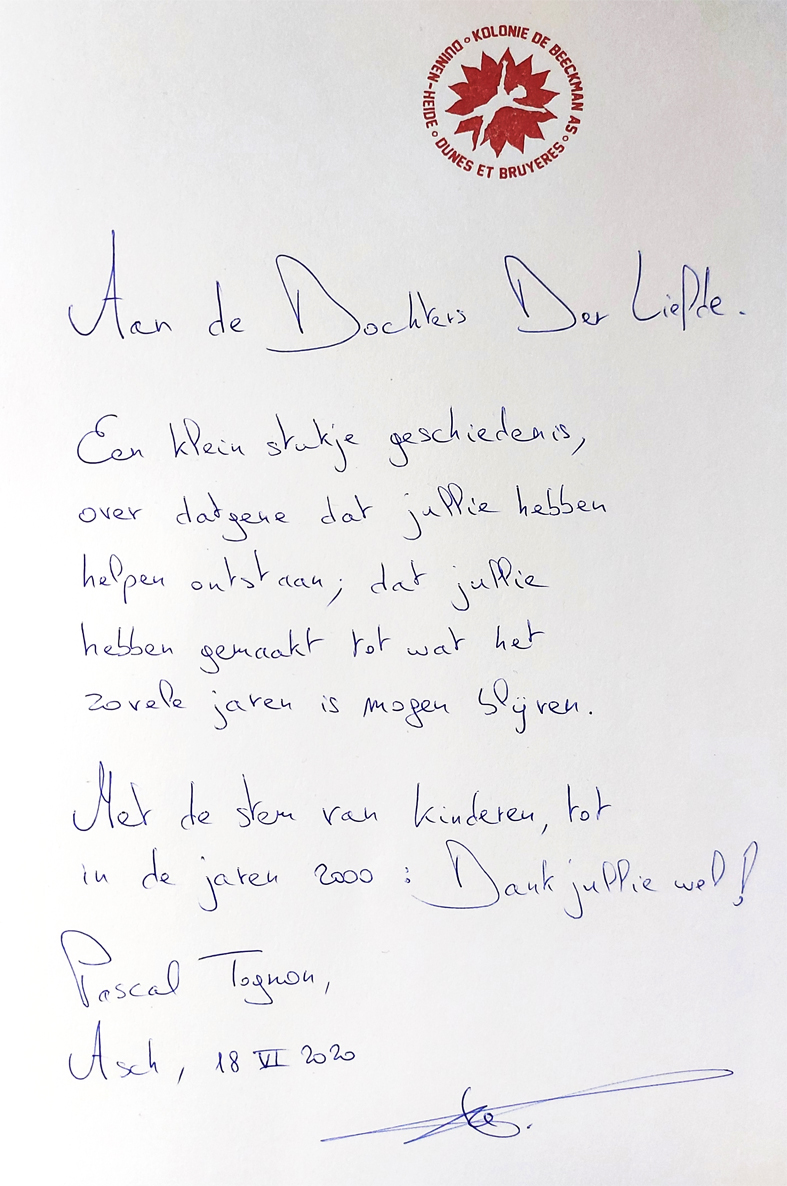 KOLONIE DE BEECKMAN AS ∘ DUNES ET BRUYERES ∘ DUINEN-HEIDE ∘
Aan de Dochters Der Liefde.
Een klein stukje geschiedenis,
over datgene dat jullie hebben
helpen ontstaan; dat jullie
hebben gemaakt tot wat het
zovele jaren is mogen blijven.
Met de stem van kinderen, tot
in de jaren 2000 : Dank jullie wel!
Pascal Tognon,
Asch, 18 VI 2020